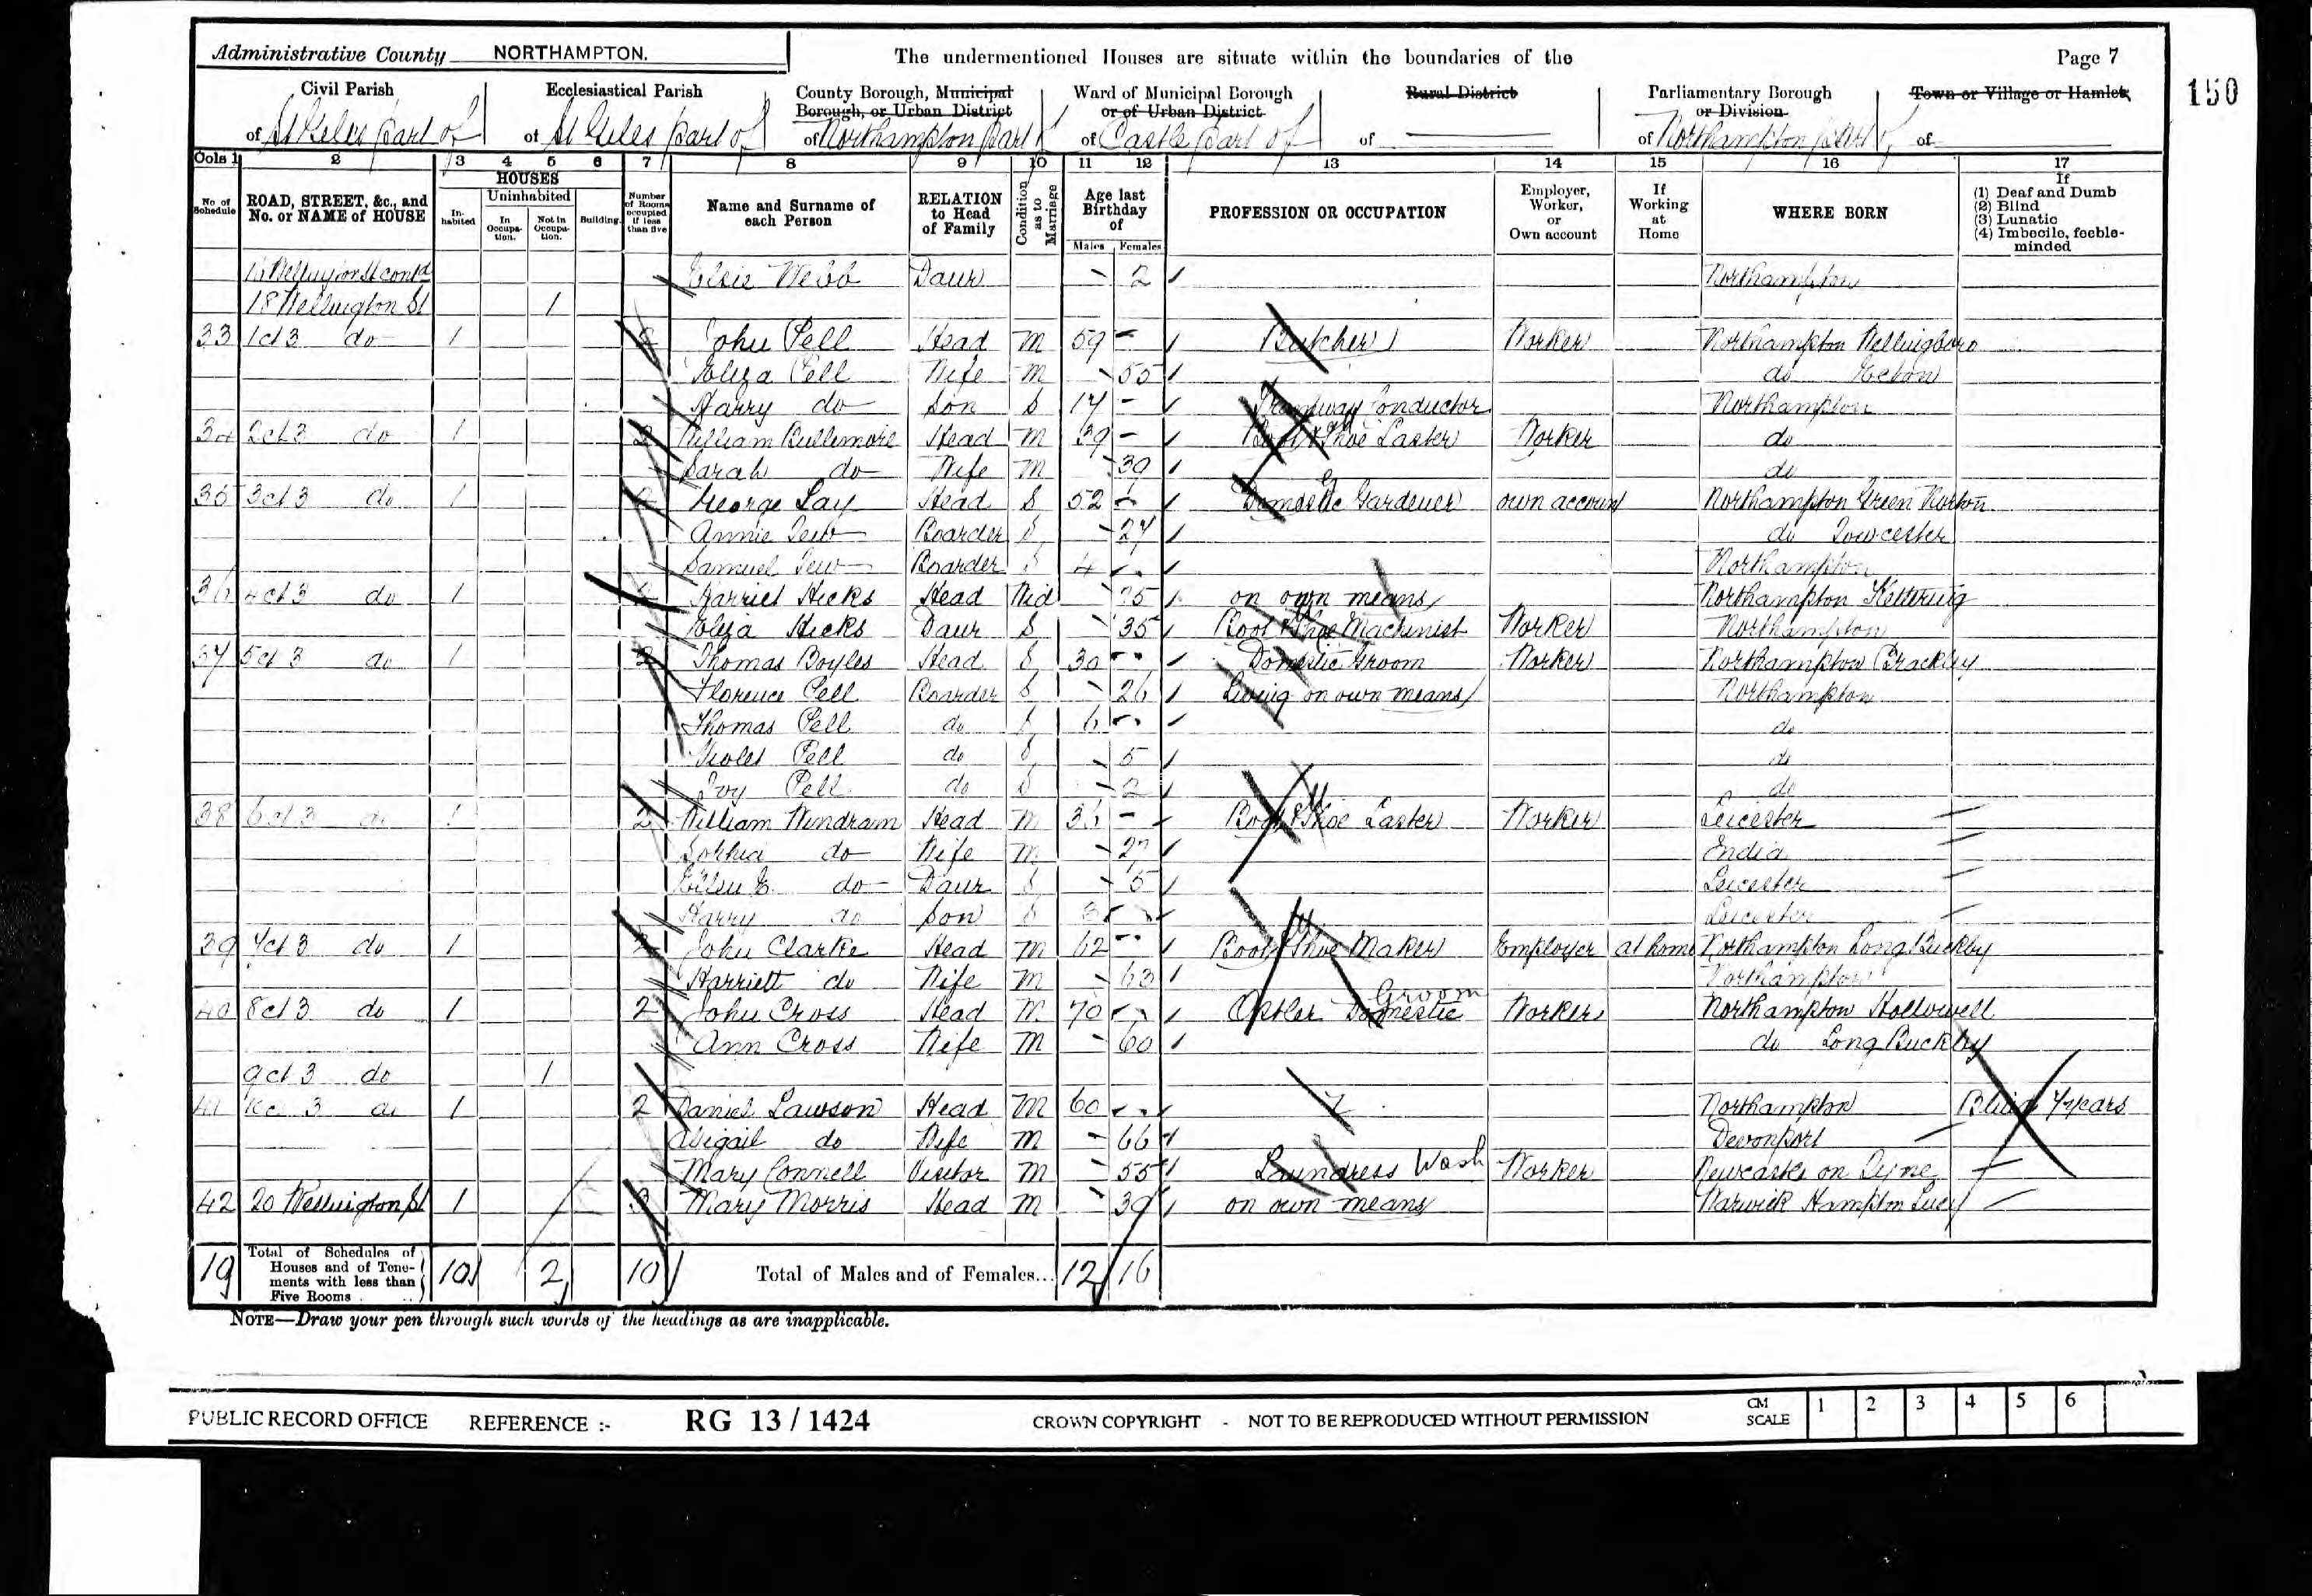 Administrative County NORTHAMPTON. The undermentioned Houses are situate within the boundaries of the Page 7
150
Civil Parish Ecclesiastical Parish County Borough, Municipal Borough, or Urban District Ward of Municipal Borough or of Urban District Rural District Parliamentary Borough or Division Town or Village or Hamlet
of St Giles part of of St Giles part of of Northampton part of of Castle part of of of Northampton part of of
Cols 1 2 3 4 5 6 7 8 9 10 11 12 13 14 15 16 17
No. of Schedule ROAD, STREET, &c., and No. or NAME of HOUSE HOUSES Inhabited Uninhabited In Occupation. Not in Occupation. Building Number of Rooms occupied if less than five Name and Surname of each Person RELATION to Head of Family Condition as to Marriage Age last Birthday of Males Females PROFESSION OR OCCUPATION Employer, Worker, or Own account If Working at Home WHERE BORN If (1) Deaf and Dumb (2) Blind (3) Lunatic (4) Imbecile, feeble-minded
Wellington St contd Elsie Webb Daur - 2 Northampton
18 Wellington St 1
33 1 ct 3 do 1 John Pell Head M 59 - Butcher Worker Northampton Wellingboro
Eliza Pell Wife M - 55 do
Harry do Son S 17 - Tramway Conductor Northampton
34 2 ct 3 do 1 3 William Bullemore Head M 39 - Boot & Shoe Laster Worker do
Sarah do Wife M - 39 do
35 3 ct 3 do 1 2 George Lay Head S 52 - Domestic Gardener own account Northampton Green Norton
Annie Tew Boarder S - 27 do Towcester
Samuel Tew Boarder S 4 - Northampton
36 4 ct 3 do 1 Harriet Hicks Head Wid - 75 on own means Northampton Kettering
Eliza Hicks Daur S - 35 Boot & Shoe Machinist Worker Northampton
37 5 ct 3 do 1 2 Thomas Boyles Head S 30 - Domestic Groom Worker Northampton Brackley
Florence Pell Boarder S - 26 Living on own means Northampton
Thomas Pell do S 6 - do
Violet Pell do S - 5 do
Ivy Pell do S - 2 do
38 6 ct 3 do 1 2 William Windram Head M 36 - Boot & Shoe Laster Worker Leicester
Sophia do Wife M - 27 India
do Daur S - 5 Leicester
Harry do Son S 3 - Leicester
39 7 ct 3 do 1 2 John Clarke Head M 62 - Boot & Shoe Maker Employer at home Northampton Long Buckby
Harriett do Wife M - 63 Northampton
40 8 ct 3 do 1 2 John Cross Head M 70 - Ostler Domestic Groom Worker Northampton Hollowell
Ann Cross Wife M - 60 do Long Buckby
9 ct 3 do 1
41 3 do 1 2 Daniel Lawson Head M 60 - Northampton Blind 7 years
Abigail do Wife M - 66 Devonport
Mary Connell Visitor M - 55 Laundress Wash Worker Newcastle on Tyne
42 20 Wellington St 1 3 Mary Morris Head M - 39 on own means Warwick Hampton Lucy
19 Total of Schedules of Houses and of Tenements with less than Five Rooms 10 2 10 Total of Males and of Females... 12 16
NOTE—Draw your pen through such words of the headings as are inapplicable.
PUBLIC RECORD OFFICE REFERENCE :- RG 13 / 1424 CROWN COPYRIGHT - NOT TO BE REPRODUCED WITHOUT PERMISSION CM SCALE 1 2 3 4 5 6